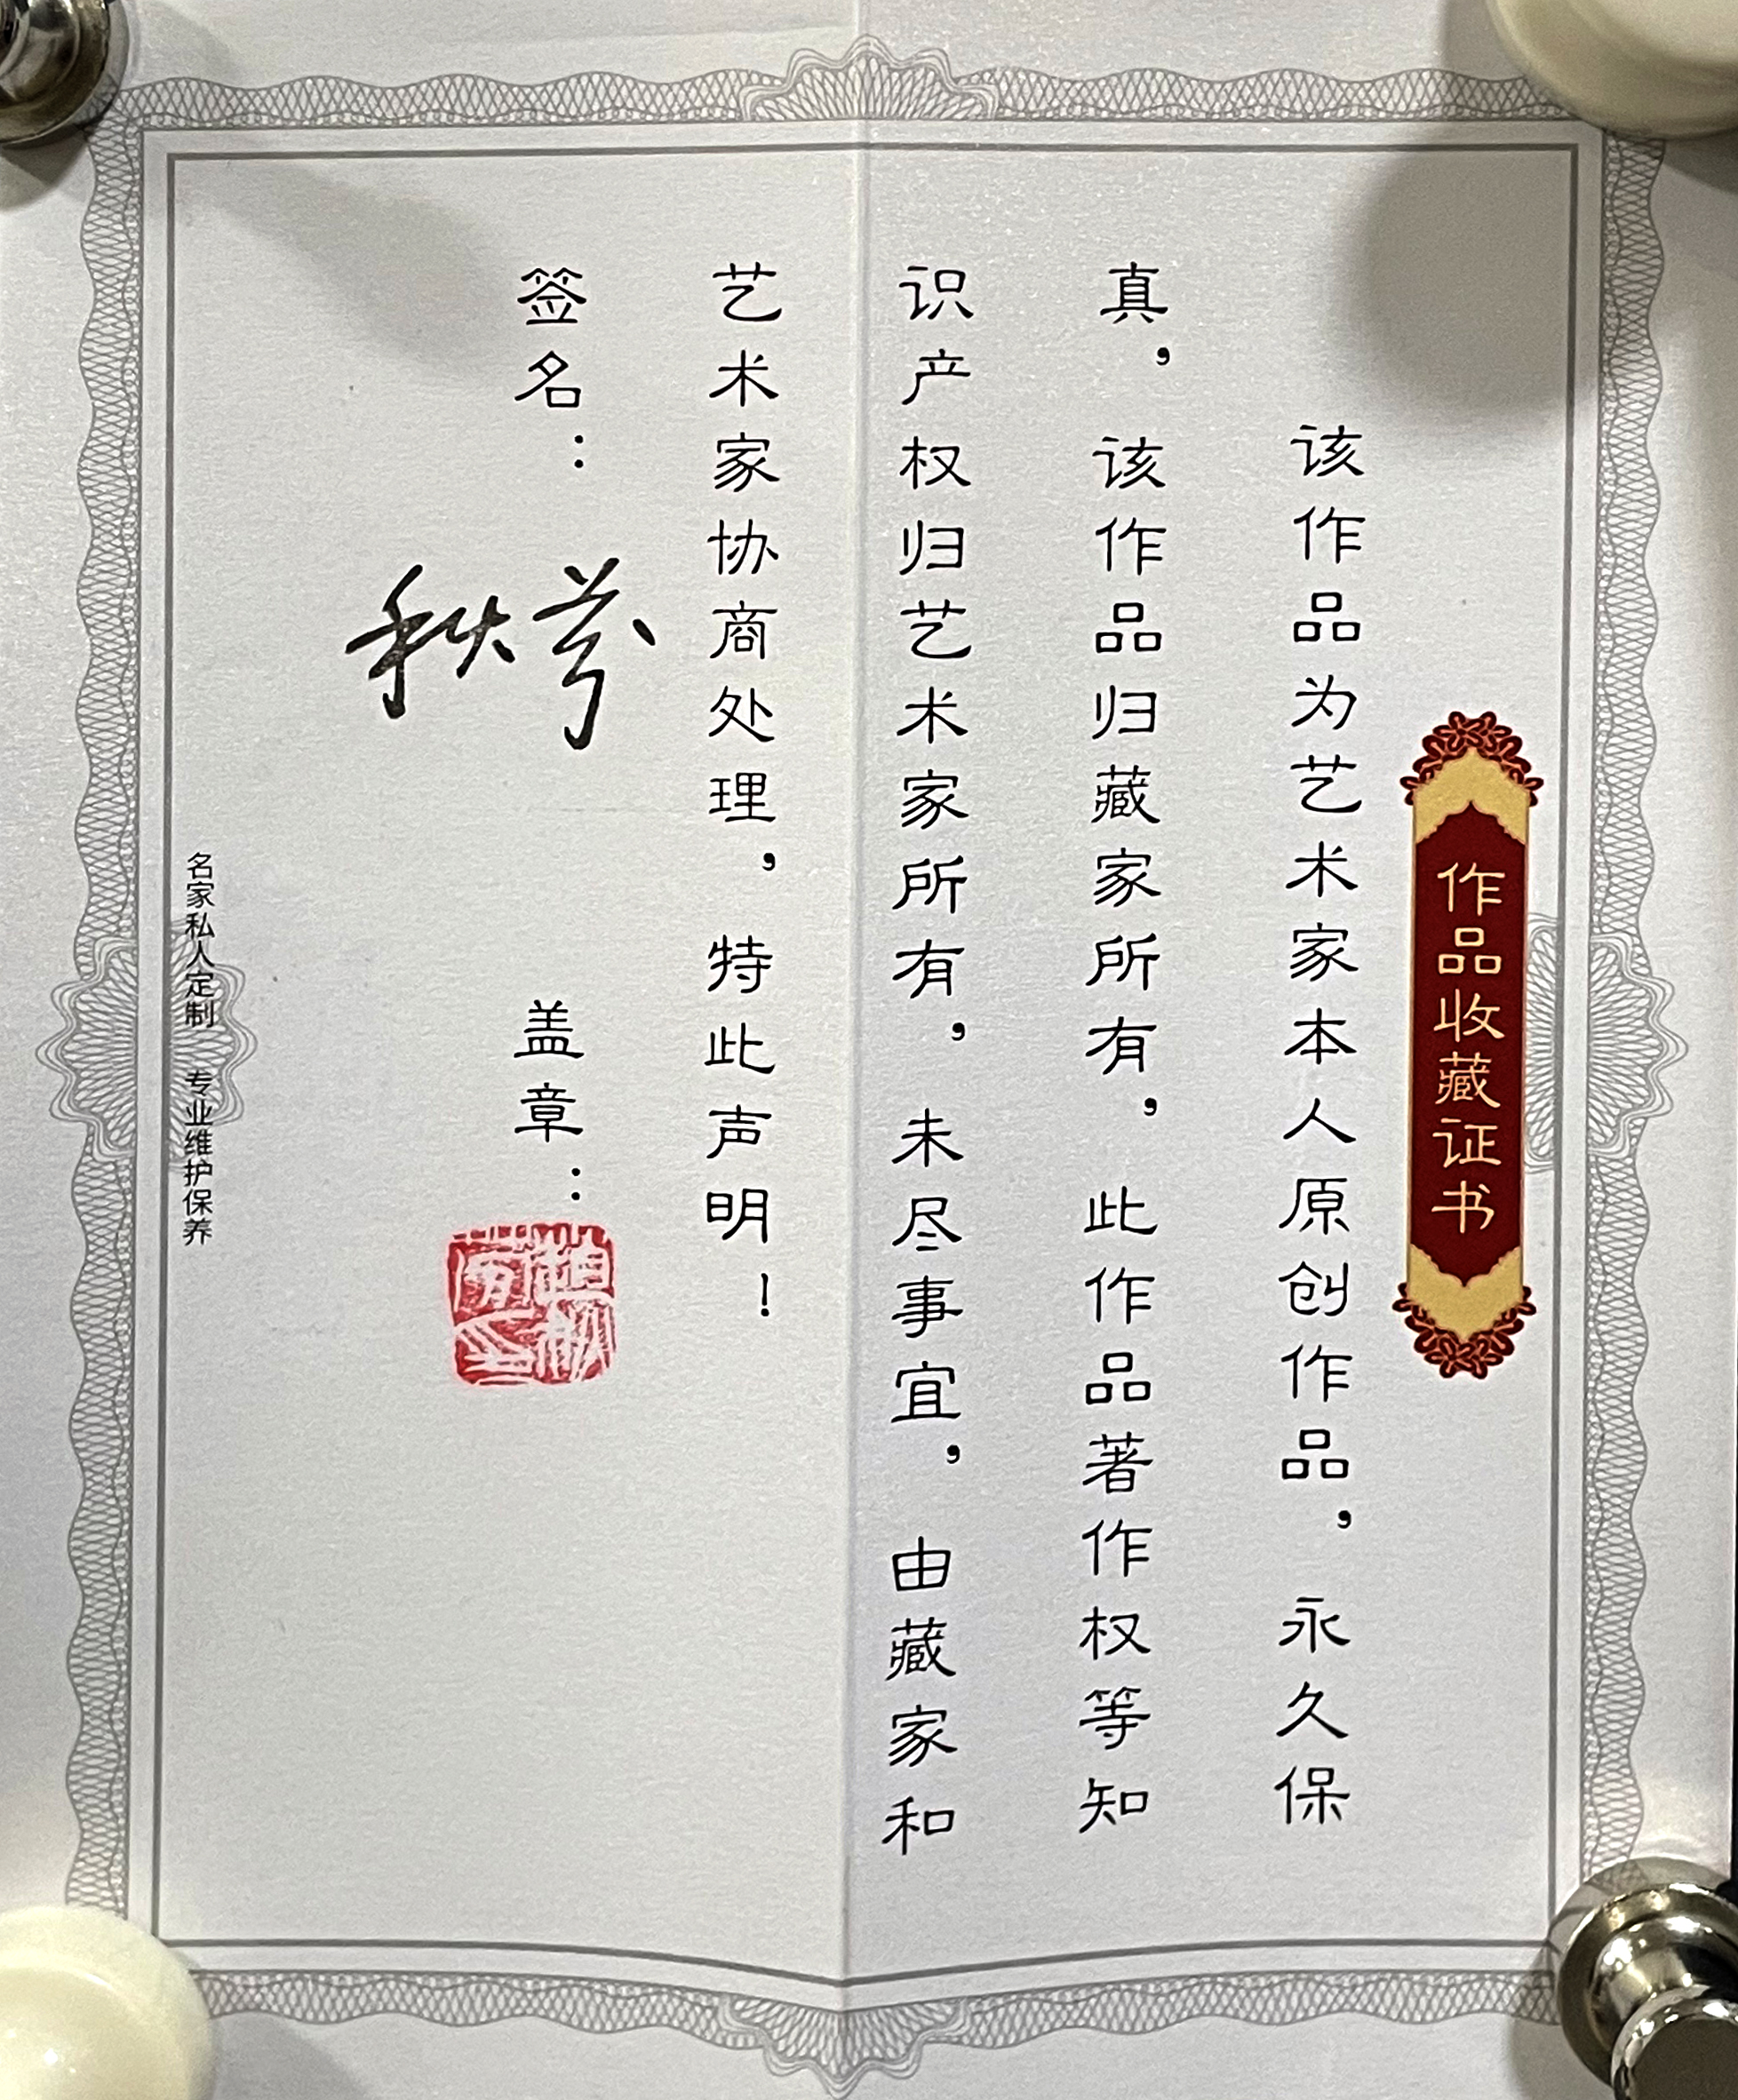 作品收藏证书
该作品为艺术家本人原创作品，永久保
真，该作品归藏家所有，此作品著作权等知
识产权归艺术家所有，未尽事宜，由藏家和
艺术家协商处理，特此声明！
签名：秋芬 盖章：
名家私人定制 专业维护保养